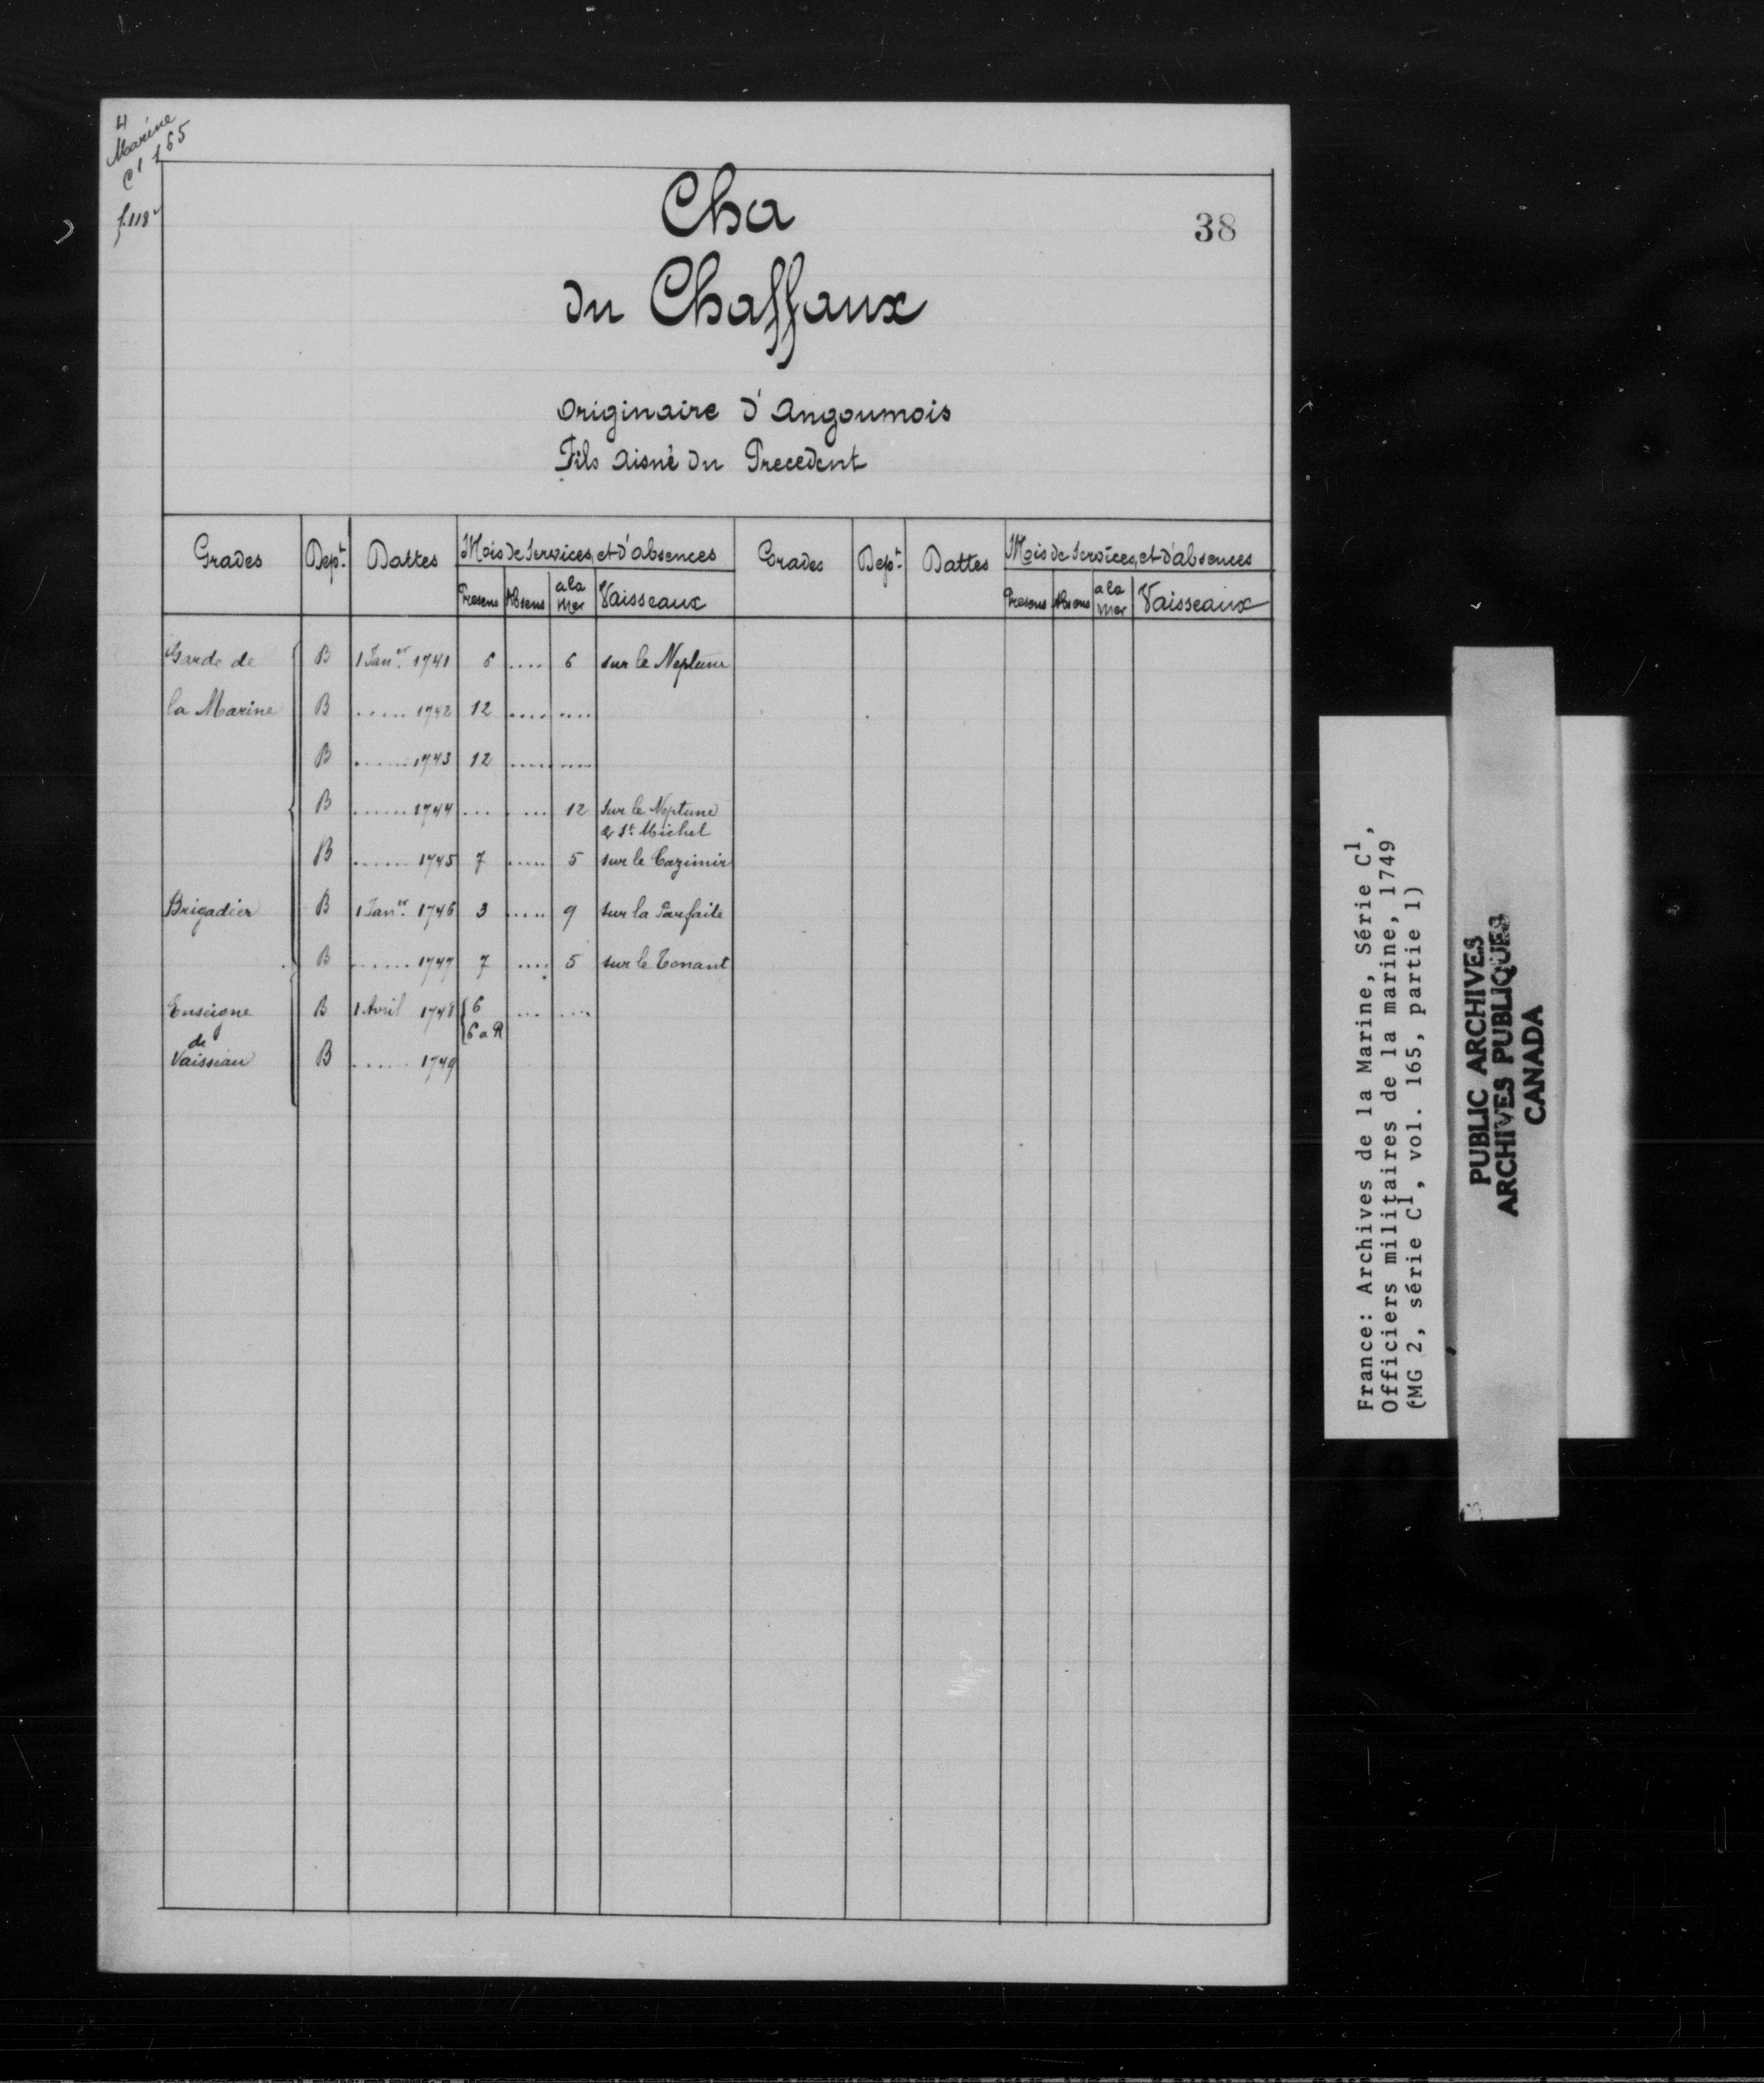 4
Marine
C1 165
f. 118v
38
Cha
du Chaffaux
Originaire d'Angoumois
Fils aisné du Precedent
Grades Dept. Dattes Mois de Services, et d'absences Grades Dept. Dattes Mois de Services, et d'absences
Presens Absens a la Mer Vaisseaux Presens Absens a la Mer Vaisseaux
Garde de B 1 Janer. 1741 6 .... 6 sur le Neptune
la Marine B ..... 1742 12 .... ....
B ...... 1743 12 ..... ....
B ...... 1744 ... .... 12 sur le Neptune
& St. Michel
B ...... 1745 7 ..... 5 sur le Cazimir
Brigadier B 1 Janer. 1746 3 ..... 9 sur la Parfaite
B ...... 1747 7 .... 5 sur le Tonant
Enseigne B 1 Avril 1748 6 ... ....
6 a R
de
Vaisseau B ...... 1749
France: Archives de la Marine, Série C1,
Officiers militaires de la marine, 1749
(MG 2, série C1, vol. 165, partie 1)
PUBLIC ARCHIVES
ARCHIVES PUBLIQUES
CANADA